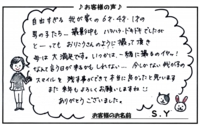 ♪お客様の声♪
自由すぎる 我が家の 6才・4才・1才の
撮影中も ハラハラ・ドキドキでしたが
とーっても おりこうさんのように撮って頂き
母は 大満足です。いつかは、一緒に撮るのイヤ！
なんて言う日が来るかもしれない… 今しかない我が子の
スマイルを 残す事ができて 本当に良かったと思います
また 来年も よろしくお願いしますね!!
ありがとうございました。
お客様のお名前 S.Y